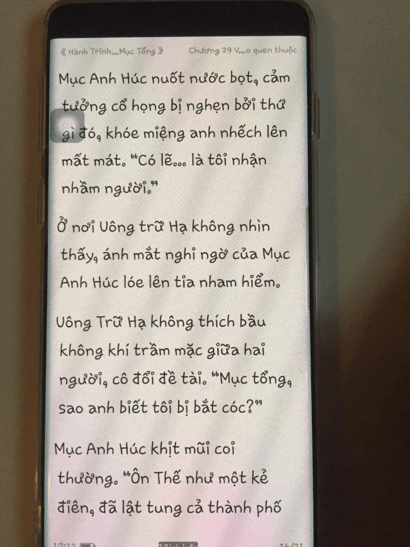 《 Hành Trình...Mục Tổng 》 Chương 29 V...o quen thuộc
Mục Anh Húc nuốt nước bọt, cảm
tưởng cổ họng bị nghẹn bởi thứ
gì đó, khóe miệng anh nhếch lên
mất mát. “Có lẽ... là tôi nhận
nhầm người.”
Ở nơi Uông trữ Hạ không nhìn
thấy, ánh mắt nghi ngờ của Mục
Anh Húc lóe lên tia nham hiểm.
Uông Trữ Hạ không thích bầu
không khí trầm mặc giữa hai
người, cô đổi đề tài. “Mục tổng,
sao anh biết tôi bị bắt cóc?”
Mục Anh Húc khịt mũi coi
thường. “Ôn Thế như một kẻ
điên, đã lật tung cả thành phố